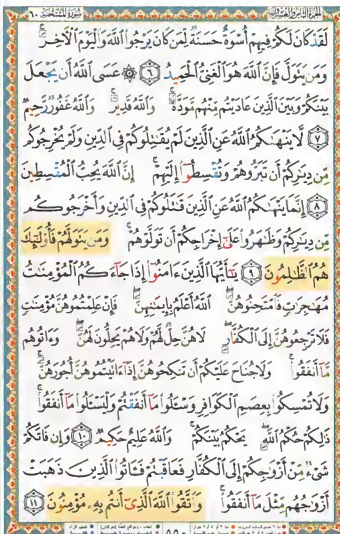 سُورَةُ المُمْتَحنَة ٦٠
لَقَدْ كَانَ لَكُمْ فِيهِمْ أُسْوَةٌ حَسَنَةٌ لِّمَن كَانَ يَرْجُوا۟ ٱللَّهَ وَٱلْيَوْمَ ٱلْـَٔاخِرَ ۚ
وَمَن يَتَوَلَّ فَإِنَّ ٱللَّهَ هُوَ ٱلْغَنِىُّ ٱلْحَمِيدُ ٦ ۞ عَسَى ٱللَّهُ أَن يَجْعَلَ
بَيْنَكُمْ وَبَيْنَ ٱلَّذِينَ عَادَيْتُم مِّنْهُم مَّوَدَّةً ۚ وَٱللَّهُ قَدِيرٌ ۚ وَٱللَّهُ غَفُورٌ رَّحِيمٌ
٧ لَّا يَنْهَىٰكُمُ ٱللَّهُ عَنِ ٱلَّذِينَ لَمْ يُقَـٰتِلُوكُمْ فِى ٱلدِّينِ وَلَمْ يُخْرِجُوكُم
مِّن دِيَـٰرِكُمْ أَن تَبَرُّوهُمْ وَتُقْسِطُوٓا۟ إِلَيْهِمْ ۚ إِنَّ ٱللَّهَ يُحِبُّ ٱلْمُقْسِطِينَ
٨ إِنَّمَا يَنْهَىٰكُمُ ٱللَّهُ عَنِ ٱلَّذِينَ قَـٰتَلُوكُمْ فِى ٱلدِّينِ وَأَخْرَجُوكُم
مِّن دِيَـٰرِكُمْ وَظَـٰهَرُوا۟ عَلَىٰٓ إِخْرَاجِكُمْ أَن تَوَلَّوْهُمْ ۚ وَمَن يَتَوَلَّهُمْ فَأُو۟لَـٰٓئِكَ
هُمُ ٱلظَّـٰلِمُونَ ٩ يَـٰٓأَيُّهَا ٱلَّذِينَ ءَامَنُوٓا۟ إِذَا جَآءَكُمُ ٱلْمُؤْمِنَـٰتُ
مُهَـٰجِرَٰتٍ فَٱمْتَحِنُوهُنَّ ۖ ٱللَّهُ أَعْلَمُ بِإِيمَـٰنِهِنَّ ۖ فَإِنْ عَلِمْتُمُوهُنَّ مُؤْمِنَـٰتٍ
فَلَا تَرْجِعُوهُنَّ إِلَى ٱلْكُفَّارِ ۖ لَا هُنَّ حِلٌّ لَّهُمْ وَلَا هُمْ يَحِلُّونَ لَهُنَّ ۖ وَءَاتُوهُم
مَّآ أَنفَقُوا۟ ۚ وَلَا جُنَاحَ عَلَيْكُمْ أَن تَنكِحُوهُنَّ إِذَآ ءَاتَيْتُمُوهُنَّ أُجُورَهُنَّ ۚ
وَلَا تُمْسِكُوا۟ بِعِصَمِ ٱلْكَوَافِرِ وَسْـَٔلُوا۟ مَآ أَنفَقْتُمْ وَلْيَسْـَٔلُوا۟ مَآ أَنفَقُوا۟ ۚ
ذَٰلِكُمْ حُكْمُ ٱللَّهِ ۖ يَحْكُمُ بَيْنَكُمْ ۚ وَٱللَّهُ عَلِيمٌ حَكِيمٌ ١٠ وَإِن فَاتَكُمْ
شَىْءٌ مِّنْ أَزْوَٰجِكُمْ إِلَى ٱلْكُفَّارِ فَعَاقَبْتُمْ فَـَٔاتُوا۟ ٱلَّذِينَ ذَهَبَتْ
أَزْوَٰجُهُم مِّثْلَ مَآ أَنفَقُوا۟ ۚ وَٱتَّقُوا۟ ٱللَّهَ ٱلَّذِىٓ أَنتُم بِهِۦ مُؤْمِنُونَ ١١
٥٥٠